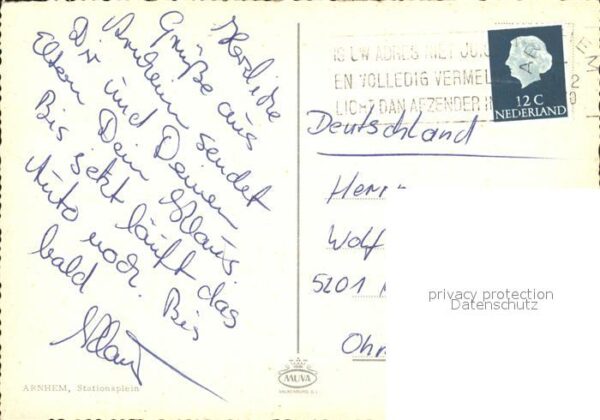 Herzliche
Grüße aus
Arnhem sendet
Dir und Deinen
Eltern Dein Klaus.
Bis jetzt läuft das
Auto noch. Bis
bald
Klaus
ARNHEM, Stationsplein
MUVA
VALKENBURG
IS UW ADRES NIET JUIS
EN VOLLEDIG VERMEL
LICHT DAN AFZENDER IN
ARNHEM
12 C
NEDERLAND
Deutschland
Herr
Wolf
5201
privacy protection
Datenschutz